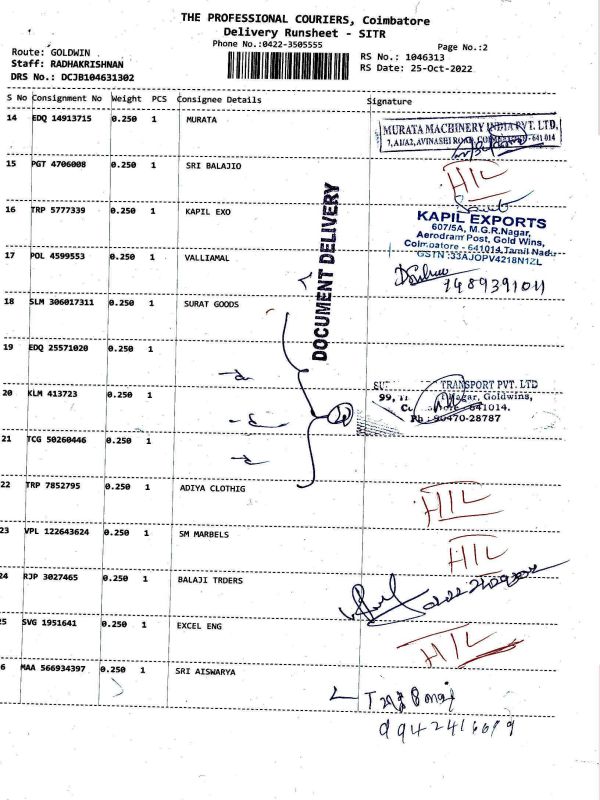 THE PROFESSIONAL COURIERS, Coimbatore
Delivery Runsheet - SITR
Phone No.:0422-3505555
Page No.:2
Route: GOLDWIN
Staff: RADHAKRISHNAN
DRS No.: DCJB104631302
RS No.: 1046313
RS Date: 25-Oct-2022
S No Consignment No Weight PCS Consignee Details Signature
14 EDQ 14913715 0.250 1 MURATA
MURATA MACHINERY INDIA PVT. LTD,
7, A1/A2, AVINASHI ROAD, COIMBATORE - 641 014
15 PGT 4706008 0.250 1 SRI BALAJIO
HIL
16 TRP 5777339 0.250 1 KAPIL EXO
KAPIL EXPORTS
607/5A, M.G.R.Nagar,
Aerodram Post, Gold Wins,
Coimbatore - 641014.Tamil Nadu
GSTN :33AJOPV4218N1ZL
17 POL 4599553 0.250 1 VALLIAMAL
DOCUMENT DELIVERY
18 SLM 306017311 0.250 1 SURAT GOODS
19 EDQ 25571020 0.250 1
20 KLM 413723 0.250 1
TRANSPORT PVT. LTD
99, Nagar, Goldwins,
641014.
Ph : 90470-28787
21 TCG 50260446 0.250 1
22 TRP 7852795 0.250 1 ADIYA CLOTHIG
HIL
23 VPL 122643624 0.250 1 SM MARBELS
HIL
24 RJP 3027465 0.250 1 BALAJI TRDERS
25 SVG 1951641 0.250 1 EXCEL ENG
HIL
6 MAA 566934397 0.250 1 SRI AISWARYA
9942416619